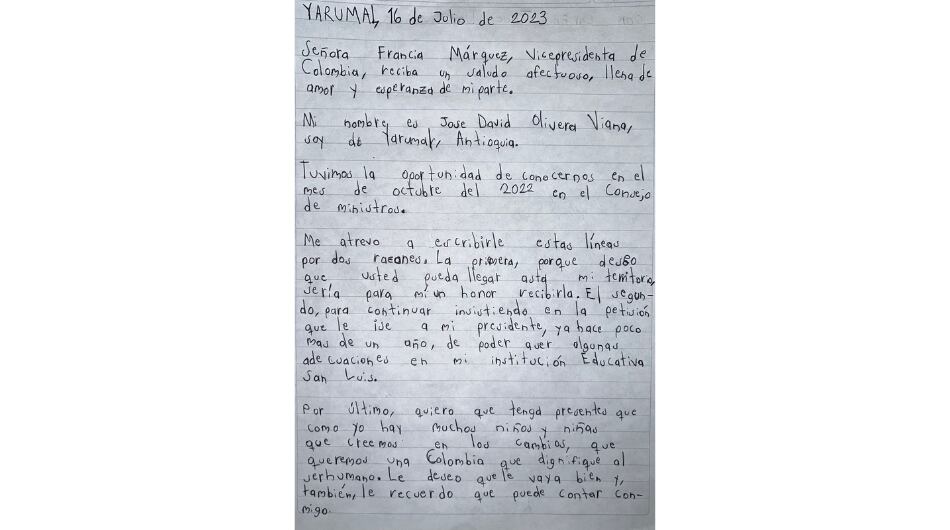 YARUMAL, 16 de Julio de 2023
Señora Francia Márquez, Vicepresidenta de
Colombia, reciba un saludo afectuoso, llena de
amor y esperanza de mi parte.
Mi nombre es Jose David Olivera Viana,
soy de Yarumal, Antioquia.
Tuvimos la oportunidad de conocernos en el
mes de octubre del 2022 en el Consejo
de ministros.
Me atrevo a escribirle estas líneas
por dos razones. La primera, porque deseo
que usted pueda llegar asta mi territorio,
sería para mí un honor recibirla. El segun-
do, para continuar insistiendo en la petisión
que le ise a mi presidente, ya hace poco
mas de un año, de poder aver algunas
adecuaciones en mi institución Educativa
San Luis.
Por último, quiero que tenga presentes que
como yo hay muchos niños y niñas
que creemos en los cambios, que
queremos una Colombia que dignifique al
serhumano. Le deseo que le vaya bien y,
también, le recuerdo que puede contar con-
migo.